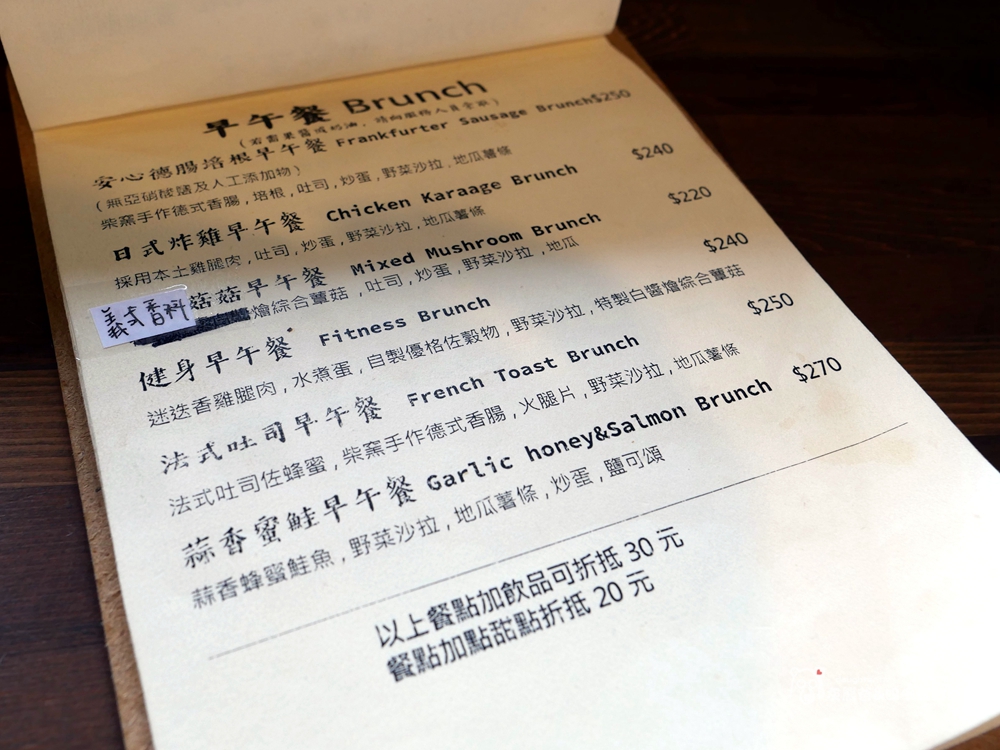 早午餐 Brunch
(若需果醬或奶油,請向服務人員索取)
安心德腸培根早午餐 Frankfurter Sausage Brunch $250
(無亞硝酸鹽及人工添加物)
柴窯手作德式香腸,培根,吐司,炒蛋,野菜沙拉,地瓜薯條
日式炸雞早午餐 Chicken Karaage Brunch $240
採用本土雞腿肉,吐司,炒蛋,野菜沙拉,地瓜薯條
菇菇早午餐 Mixed Mushroom Brunch $220
義式香料 燴綜合蕈菇,吐司,炒蛋,野菜沙拉,地瓜
健身早午餐 Fitness Brunch $240
迷迭香雞腿肉,水煮蛋,自製優格佐穀物,野菜沙拉,特製白醬燴綜合蕈菇
法式吐司早午餐 French Toast Brunch $250
法式吐司佐蜂蜜,柴窯手作德式香腸,火腿片,野菜沙拉,地瓜薯條
蒜香蜜鮭早午餐 Garlic honey&Salmon Brunch $270
蒜香蜂蜜鮭魚,野菜沙拉,地瓜薯條,炒蛋,鹽可頌
以上餐點加飲品可折抵 30 元
餐點加點甜點折抵 20 元